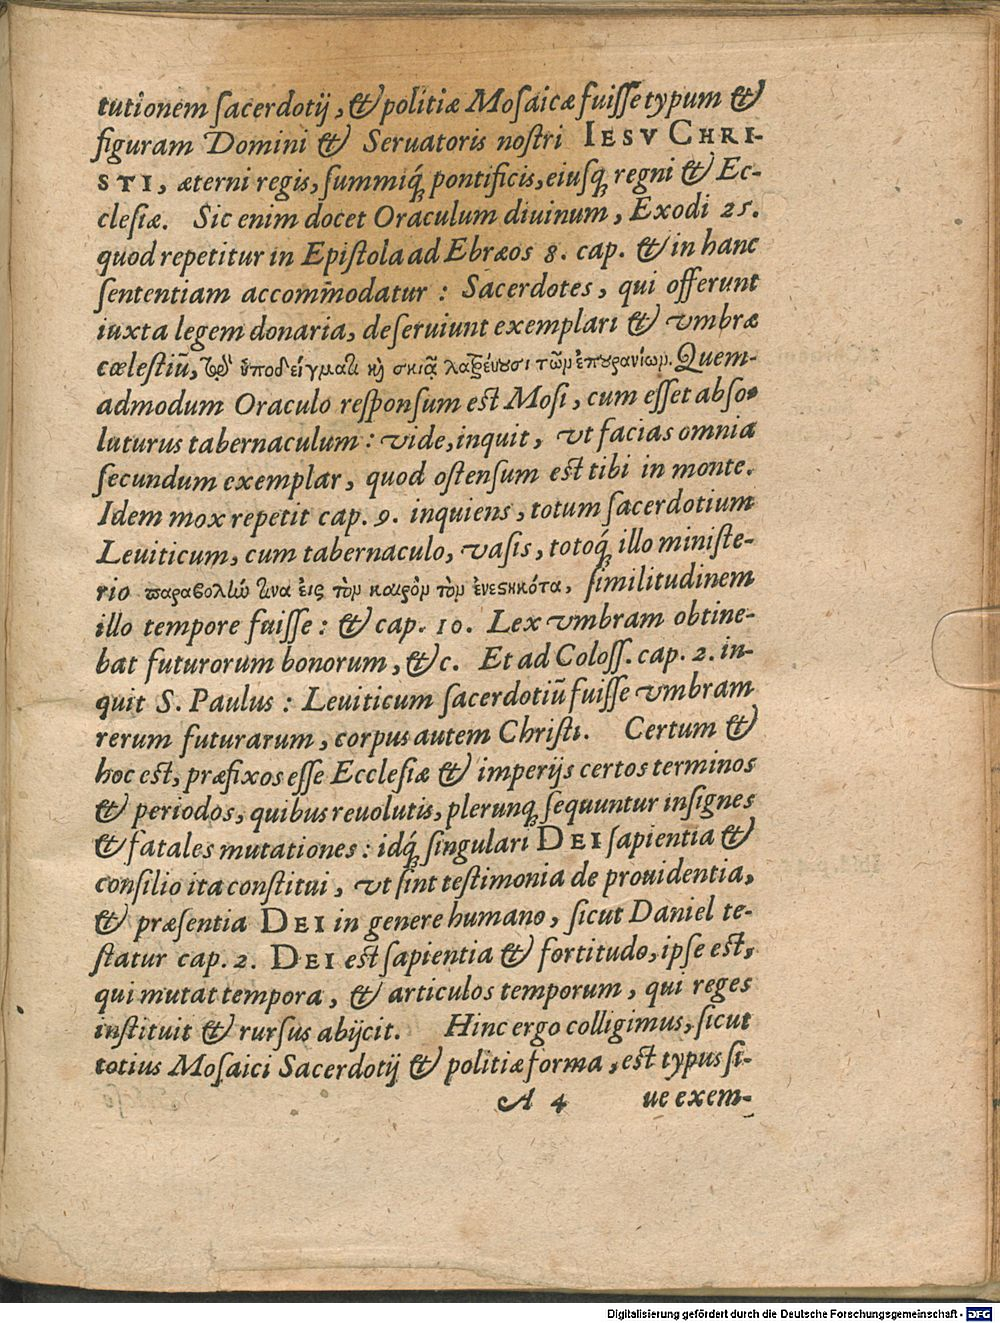 tutionem ſacerdotij, & politiæ Moſaicæ fuiſſe typum &
figuram Domini & Seruatoris noſtri IESV CHRI-
STI, æterni regis, ſummiq́; pontificis, eiuſq́; regni & Ec-
cleſiæ. Sic enim docet Oraculum diuinum, Exodi 25.
quod repetitur in Epiſtola ad Ebræos 8. cap. & in hanc
ſententiam accommodatur: Sacerdotes, qui offerunt
iuxta legem donaria, deſeruiunt exemplari & vmbræ
cœleſtiũ, ὑποδείγματι καὶ σκιᾷ λατρεύουσι τῶν ἐπουρανίων. Quem-
admodum Oraculo reſponſum est Moſi, cum eſſet abſo-
luturus tabernaculum: vide, inquit, vt facias omnia
ſecundum exemplar, quod oſtenſum est tibi in monte.
Idem mox repetit cap. 9. inquiens, totum ſacerdotium
Leuiticum, cum tabernaculo, vaſis, totoq́; illo miniſte-
rio παραβολὴν εἰς τὸν καιρὸν τὸν ἐνεστηκότα, ſimilitudinem
illo tempore fuiſſe: & cap. 10. Lex vmbram obtine-
bat futurorum bonorum, &c. Et ad Coloſſ. cap. 2. in-
quit S. Paulus: Leuiticum ſacerdotiũ fuiſſe vmbram
rerum futurarum, corpus autem Chriſti. Certum &
hoc est, præfixos eſſe Eccleſiæ & imperijs certos terminos
& periodos, quibus reuolutis, plerunq; ſequuntur inſignes
& fatales mutationes: idq́; ſingulari DEI ſapientia &
conſilio ita conſtitui, vt ſint teſtimonia de prouidentia,
& præſentia DEI in genere humano, ſicut Daniel te-
ſtatur cap. 2. DEI est ſapientia & fortitudo, ipſe est,
qui mutat tempora, & articulos temporum, qui reges
inſtituit & rurſus abijcit. Hinc ergo colligimus, ſicut
totius Moſaici Sacerdotij & politiæ forma, est typus ſi-
A 4 ue exem-
Digitalisierung gefördert durch die Deutsche Forschungsgemeinschaft - DFG